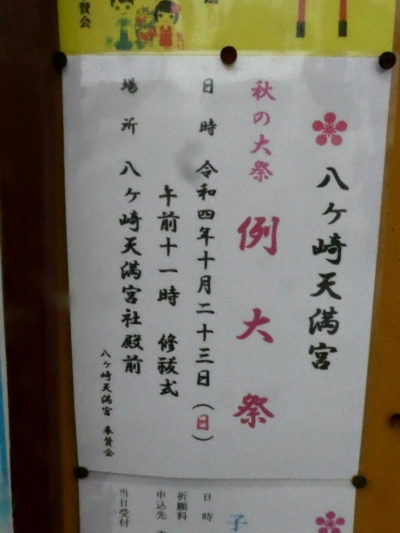 賛会
八ヶ崎天満宮
秋の大祭
例大祭
日時 令和四年十月二十三日(日)
午前十一時 修祓式
場所 八ヶ崎天満宮社殿前
八ヶ崎天満宮 奉賛会
子
日時
祈願料
申込先
当日受付